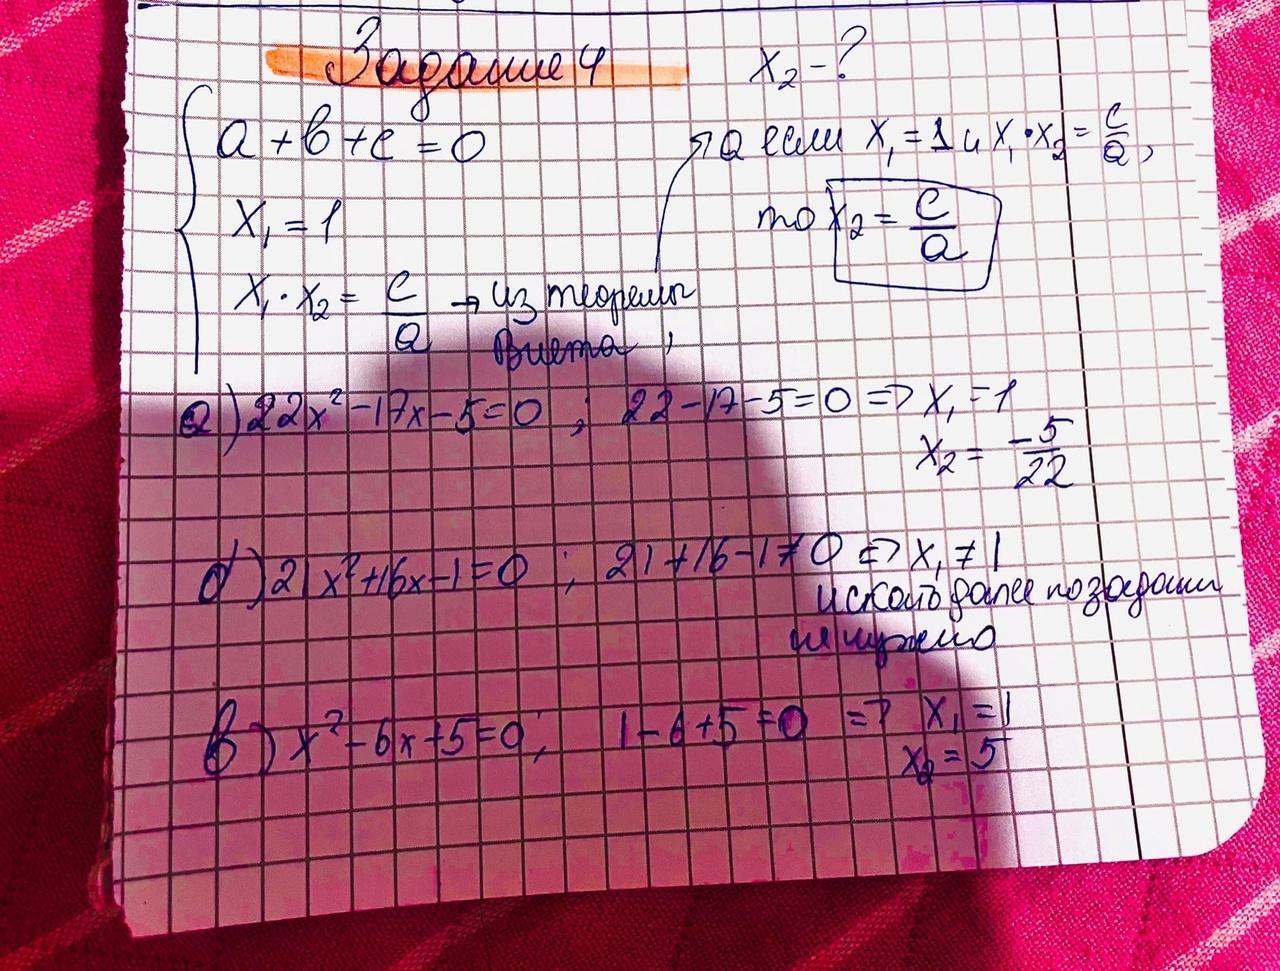 Задание 4
x₂ - ?
a + b + c = 0
x₁ = 1
x₁ · x₂ = c/a → из теоремы
Виета,
а если x₁ = 1 и x₁ · x₂ = c/a,
то x₂ = c/a
а) 22x² - 17x - 5 = 0 ; 22 - 17 - 5 = 0 => x₁ = 1
x₂ = -5/22
б) 21x² + 16x - 1 = 0 ; 21 + 16 - 1 ≠ 0 => x₁ ≠ 1
искать далее по задани
не нужно
в) x² - 6x + 5 = 0 ; 1 - 6 + 5 = 0 => x₁ = 1
x₂ = 5